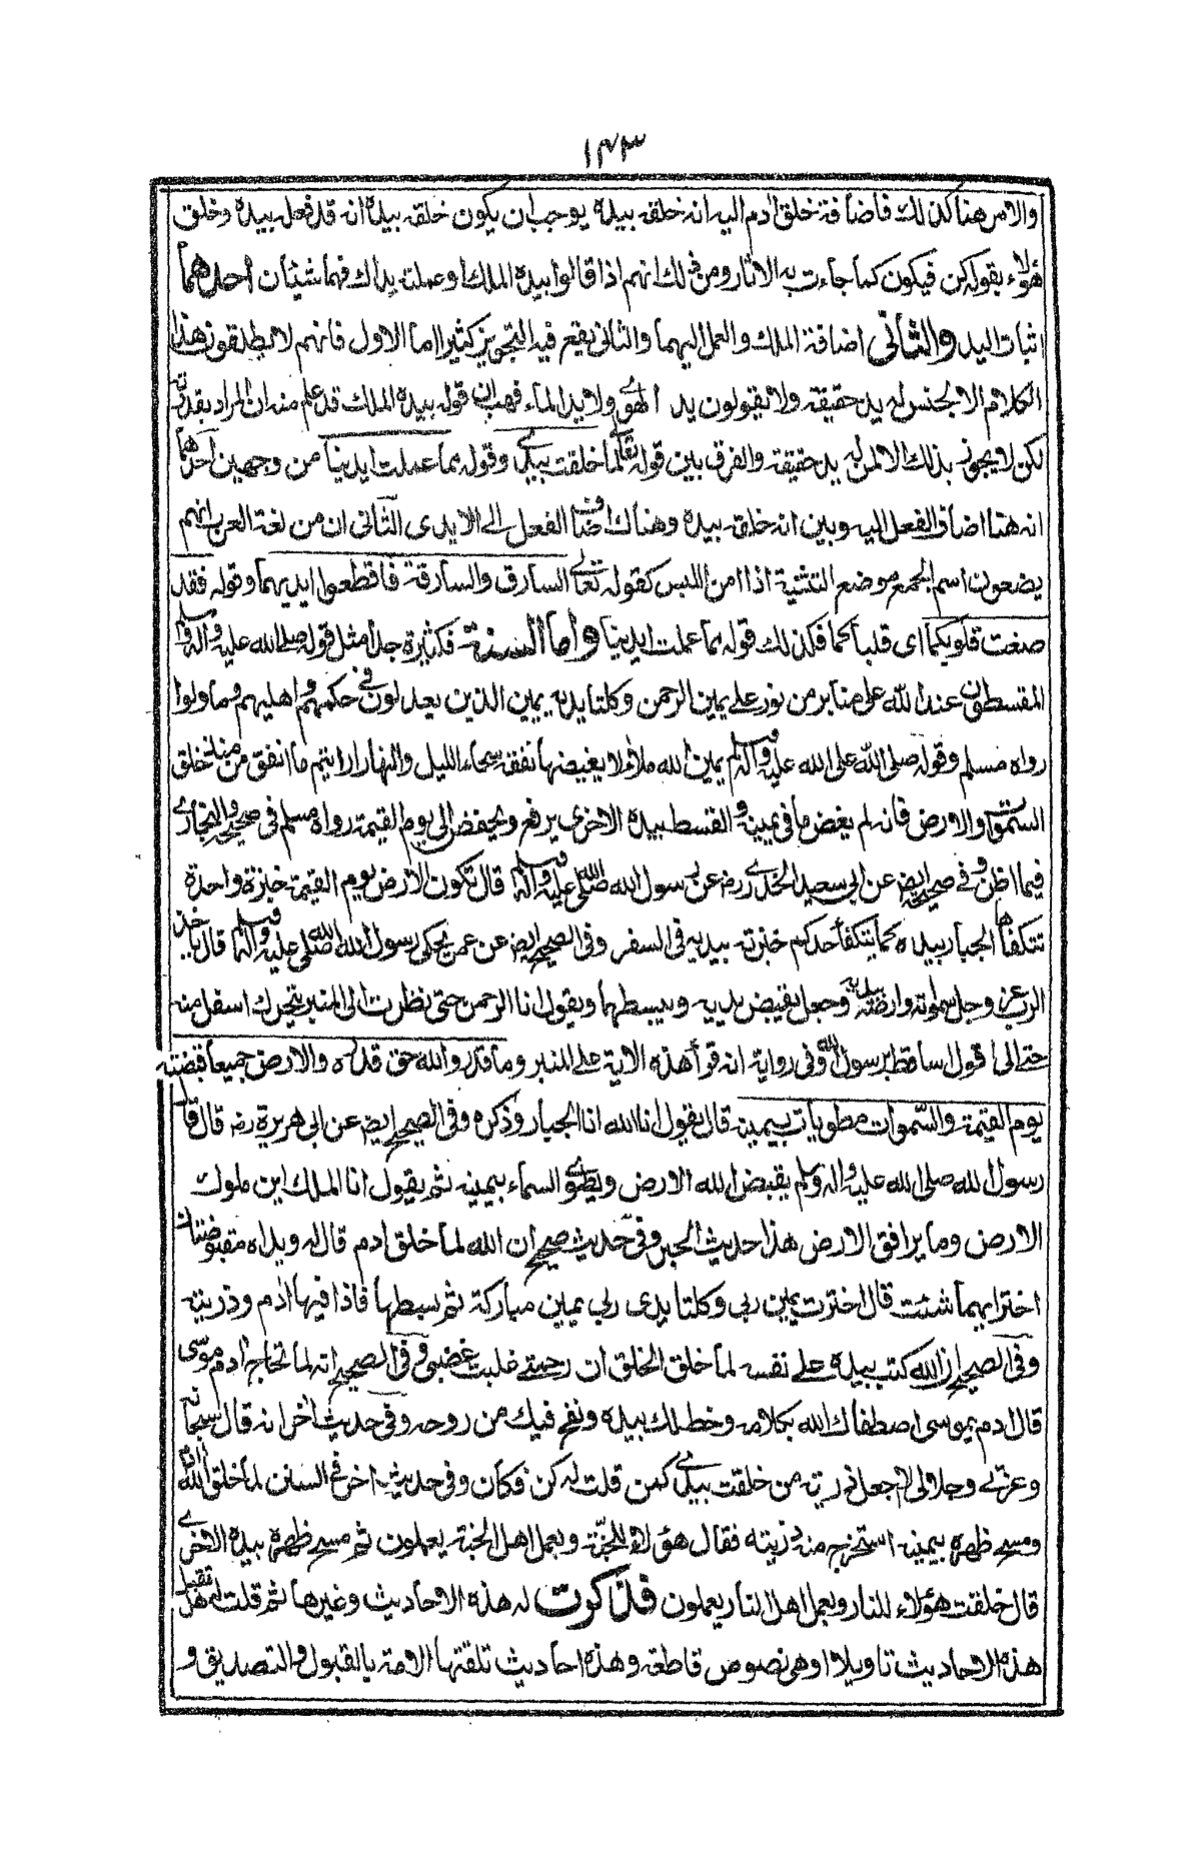 ١٤٣
والامر هنا كذلك فاضافة خلق ادم اليه انه خلقه بيده يوجب ان يكون خلقه بيده انه قد فعل بيده وخلق
هؤلاء بقوله كن فيكون كما جاءت به الاثار ومن ذلك انهم اذا قالوا بيده الملك او عملته يداك فهما شيئان احدهما
اثبات اليد والثاني اضافة الملك والعمل اليهما والثاني يقع فيه التجويز كثيرا اما الاول فانهم لا يطلقون هذا
الكلام الا لجنس له يد حقيقة ولا يقولون يد الهوى ولا يد الماء فهب ان قوله بيده الملك قد علم منه ان المراد بقدرته
لكن لا يجوز بذلك الا لمن له يد حقيقة والفرق بين قوله تعالى لما خلقت بيدي وقوله مما عملت ايدينا من وجهين احدهما
انه هنا اضاف الفعل اليه وبين انه خلقه بيده وهناك اضاف الفعل الى الايدى الثاني ان من لغة العرب انهم
يضعون اسم الجمع موضع التثنية اذا امن اللبس كقوله تعالى السارق والسارقة فاقطعوا ايديهما وقوله فقد
صغت قلوبكما اى قلباكما فكذلك قوله مما عملت ايدينا واما السنة فكثيرة جدا مثل قوله صلى الله عليه واله وسلم
المقسطون عند الله على منابر من نور على يمين الرحمن وكلتا يديه يمين الذين يعدلون في حكمهم واهليهم وما ولوا
رواه مسلم وقوله صلى الله عليه واله وسلم يمين الله ملاى لا يغيضها نفقة سحاء الليل والنهار ارايتم ما انفق منذ خلق
السموت والارض فانه لم يغض ما في يمينه والقسط بيده الاخرى يرفع ويخفض الى يوم القيمة رواه مسلم في صحيحه والبخارى
فيما اظن وفي صحيح ايض عن ابي سعيد الخدرى رضـ عن رسول الله صلى الله عليه واله وسلم قال تكون الارض يوم القيمة خبزة واحدة
تتكفأها الجبار بيده كما يتكفأ احدكم خبزته بيديه في السفر وفي الصحيح ايض عن عمر يحكى رسول الله صلى الله عليه واله وسلم قال ياخذ
الرب عز وجل سموته وارضه بيديه وجعل يقبض يديه ويبسطهما ويقول انا الرحمن حتى نظرت الى المنبر يتحرك اسفل منه
حتى انى اقول اساقط برسول الله وفي رواية انه قرأ هذه الاية على المنبر وما قدروا الله حق قدره والارض جميعا قبضته
يوم القيمة والسموات مطويات بيمينه قال يقول انا الله انا الجبار وذكره وفي الصحيح ايض عن ابي هريرة رضـ قال قال
رسول الله صلى الله عليه واله وسلم يقبض الله الارض ويطوى السماء بيمينه ثم يقول انا الملك اين ملوك
الارض وما يرافق الارض هذا حديث الحبر وفي حديث صحيح ان الله لما خلق ادم قال له ويداه مقبوضتان
اختر ايهما شئت قال اخترت يمين ربي وكلتا يدى ربي يمين مباركة ثم بسطها فاذا فيها ادم وذريته
وفي الصحيح ان الله كتب بيده على نفسه لما خلق الخلق ان رحمتي غلبت غضبي وفي الصحيح انه لما تحاج ادم وموسى
قال ادم يموسى اصطفاك الله بكلامه وخط لك بيده ونفخ فيك من روحه وفي حديث اخر انه قال سبحانه
وعزتي وجلالي لا اجعل ذرية من خلقت بيدي كمن قلت له كن فكان وفي حديث اخر في السنن لما خلق الله ادم
ومسح ظهره بيمينه استخرج منه ذريته فقال هؤلاء للجنة وبعمل اهل الجنة يعملون ثم مسح ظهره بيده الاخرى
قال خلقت هؤلاء للنار وبعمل اهل النار يعملون فذكرت له هذه الاحاديث وغيرها ثم قلت له هل تقبل
هذه الاحاديث تاويلا او هي نصوص قاطعة وهذه احاديث تلقتها الامة بالقبول والتصديق و